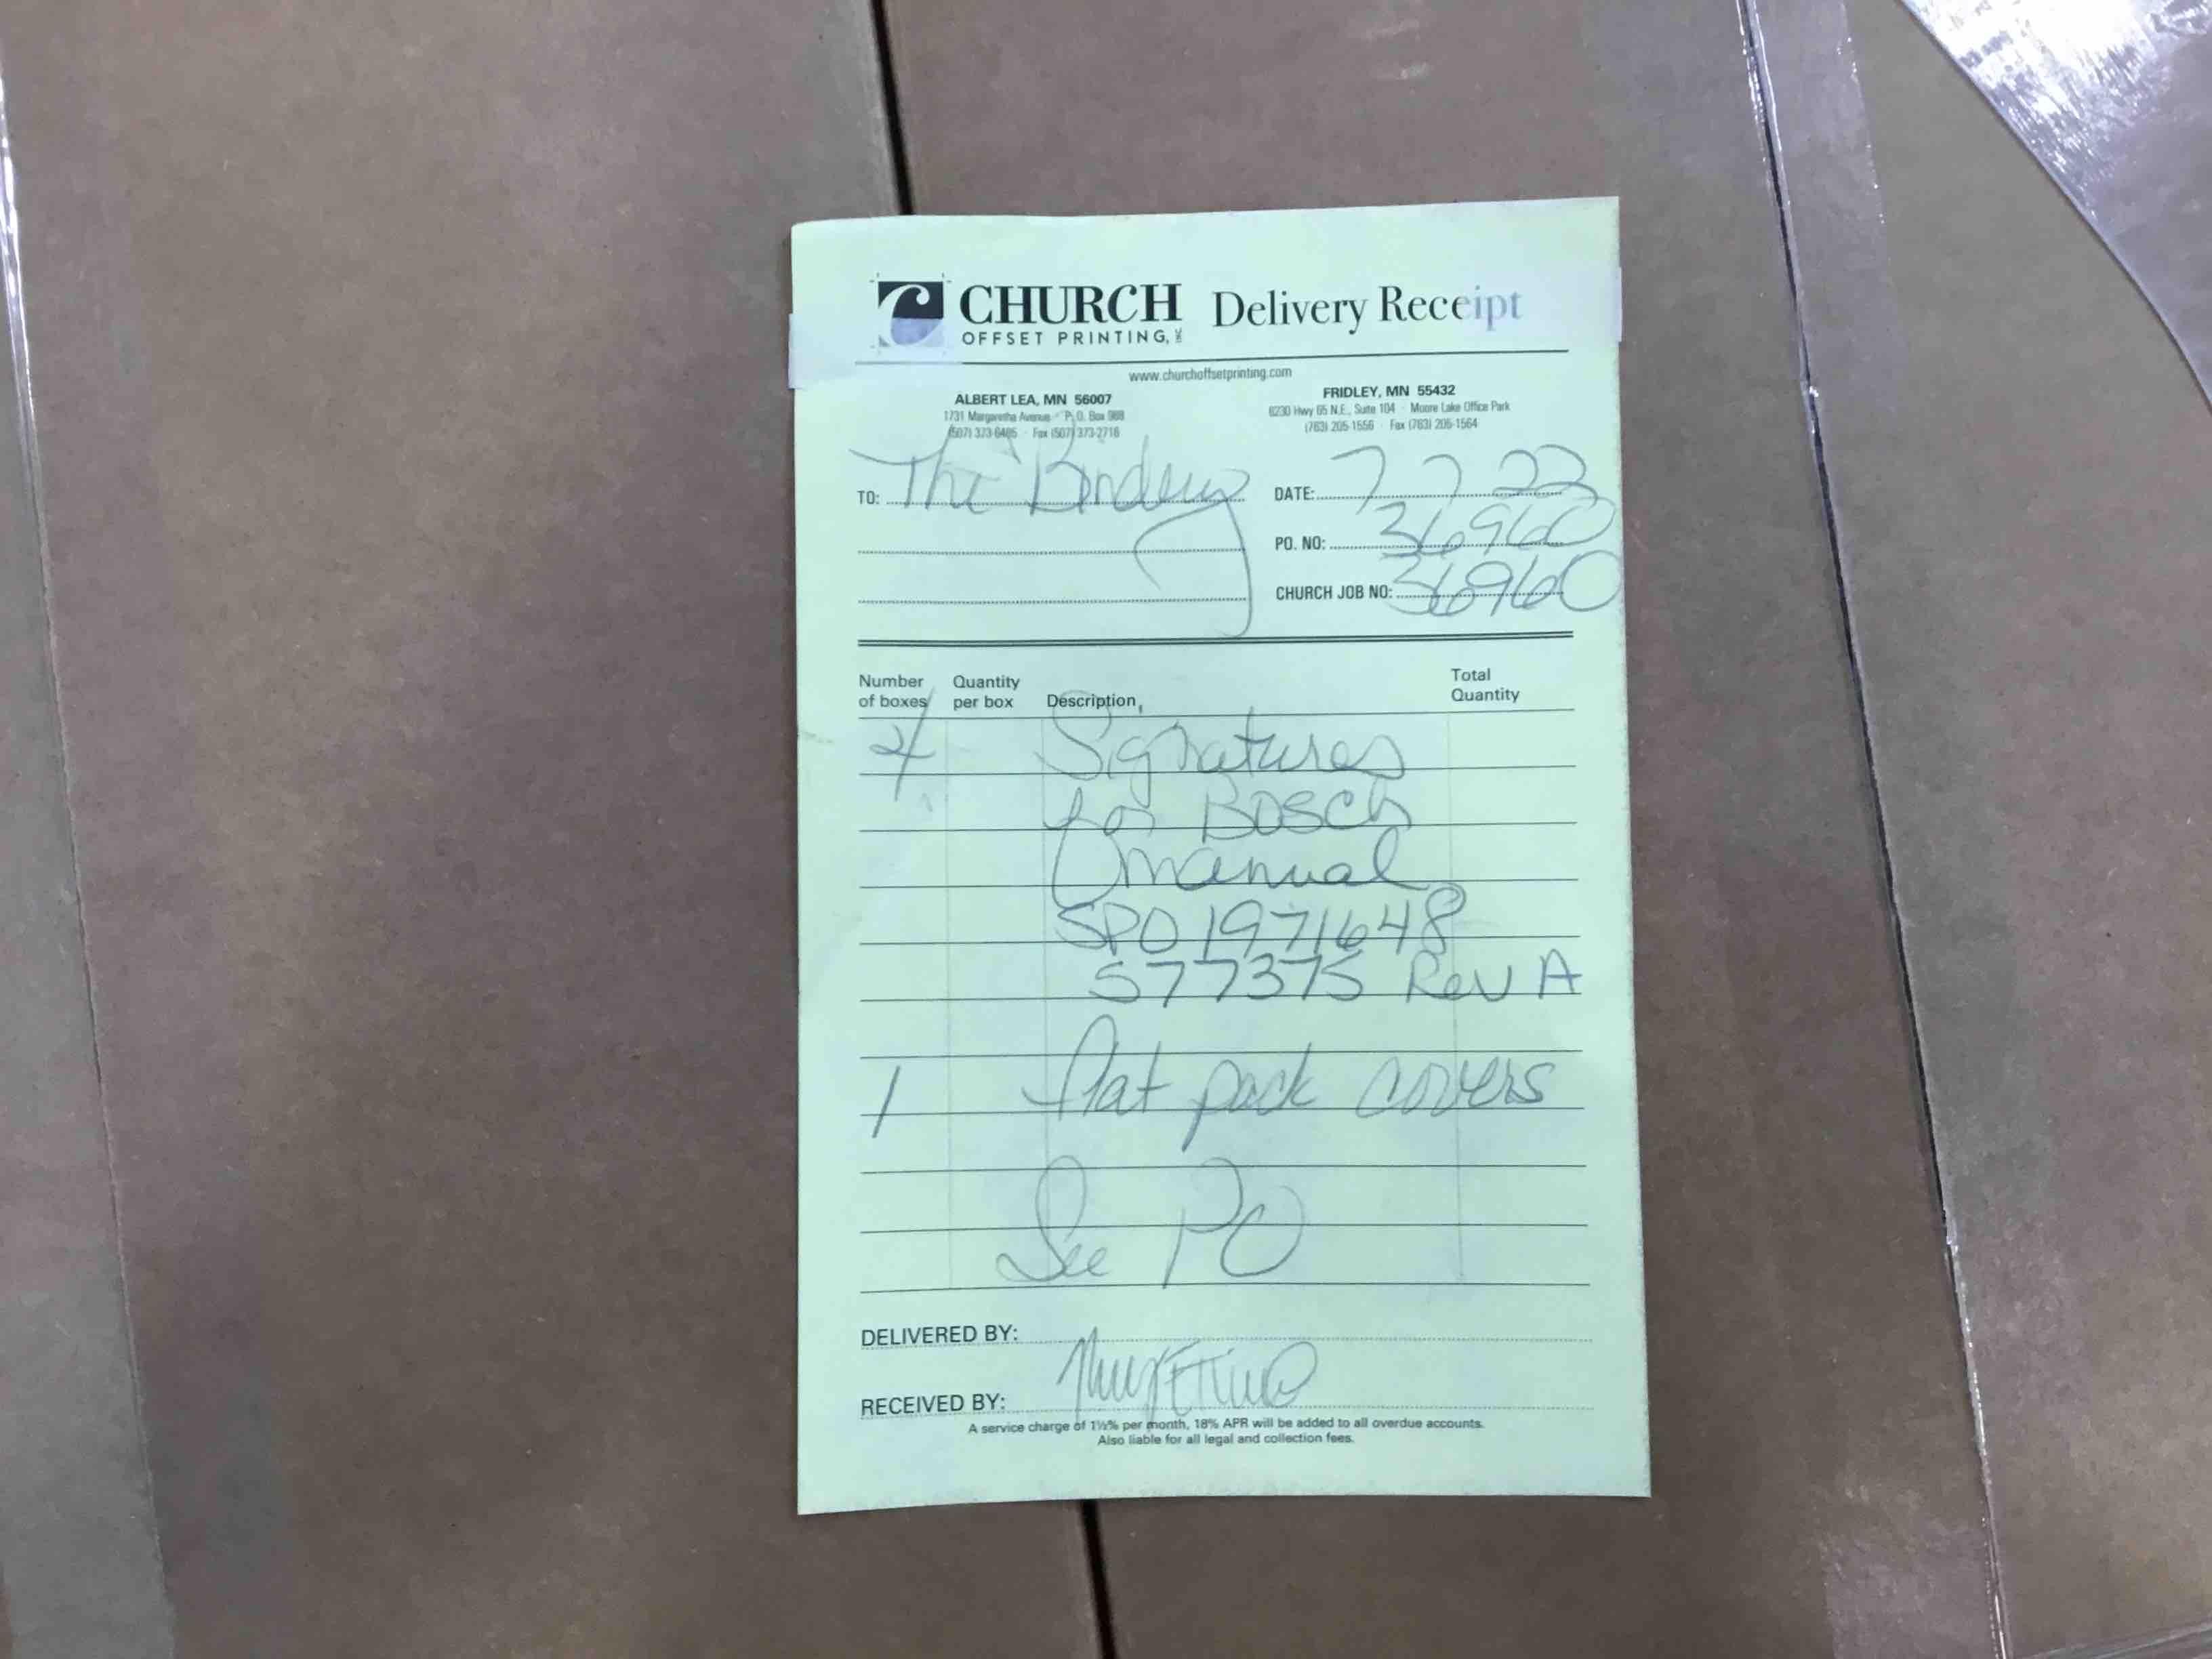 CHURCH Delivery Receipt
OFFSET PRINTING, INC
www.churchoffsetprinting.com
ALBERT LEA, MN 56007
1731 Margaretha Avenue · P.O. Box 988
(507) 373-6485 · Fax (507) 373-2716
FRIDLEY, MN 55432
6230 Hwy 65 N.E., Suite 104 · Moore Lake Office Park
(763) 205-1556 · Fax (763) 205-1564
TO: The Bindery
DATE: 7 7 22
PO. NO: 36960
CHURCH JOB NO: 36960
Number of boxes Quantity per box Description Total Quantity
4 Signatures
for BOSCH
manual
SPO 1971648
577375 Rev A
1 flat pack covers
See PO
DELIVERED BY:
RECEIVED BY:
A service charge of 1½% per month, 18% APR will be added to all overdue accounts.
Also liable for all legal and collection fees.